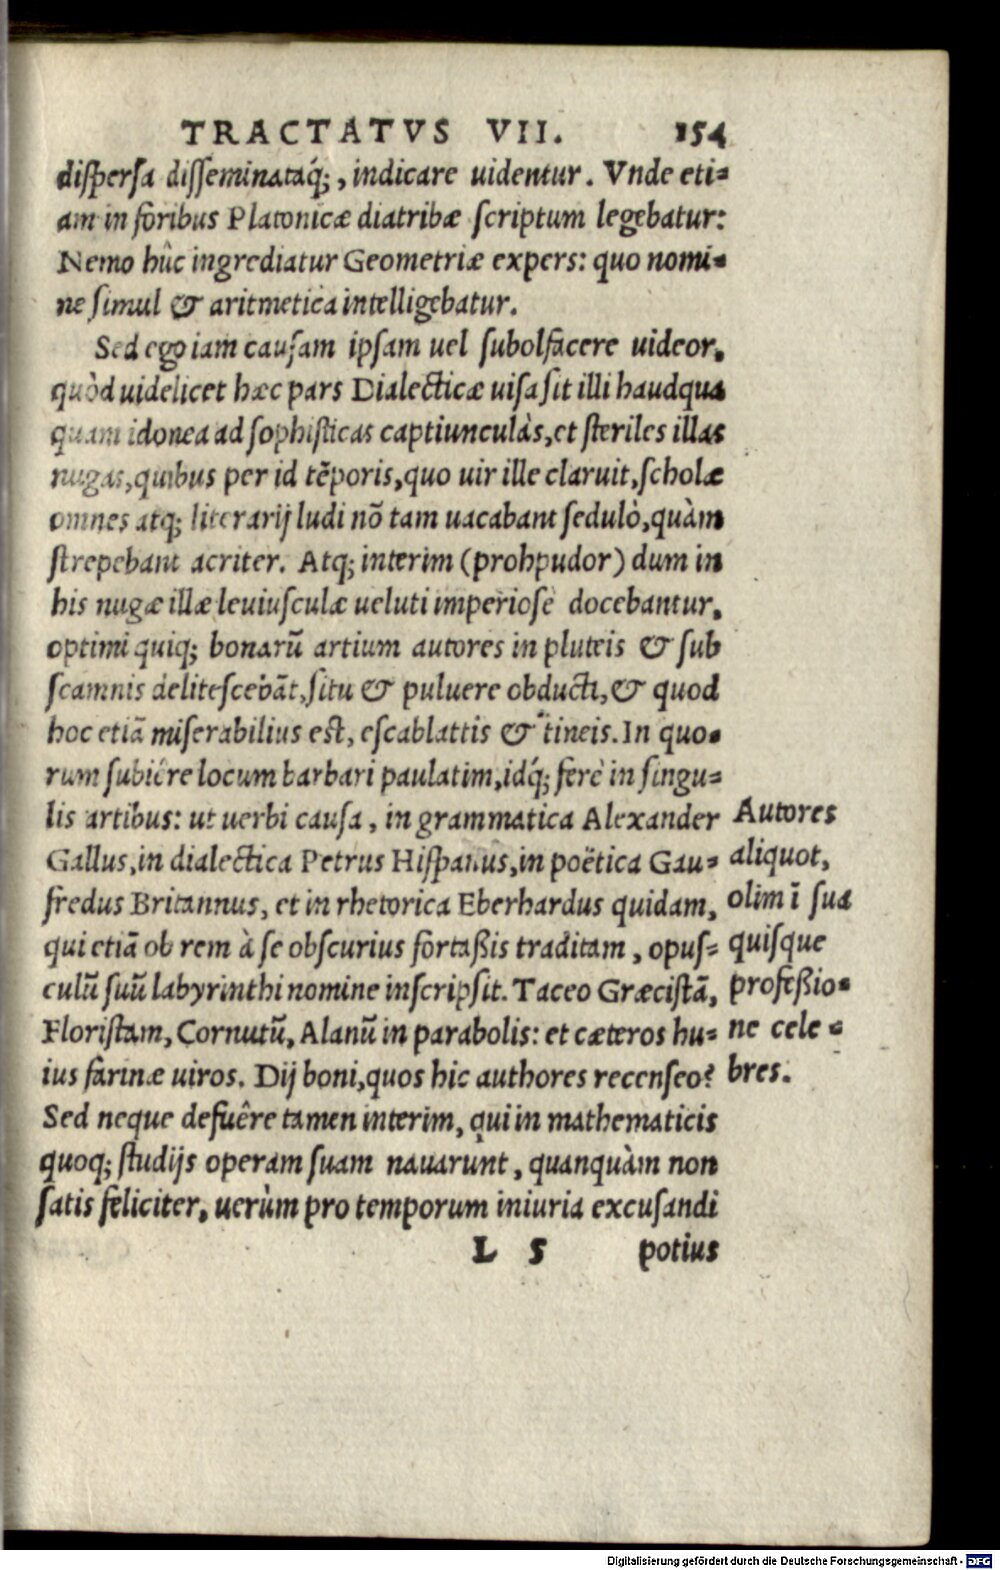 TRACTATVS VII. 154
dispersa disseminataq́;, indicare uidentur. Vnde eti-
am in foribus Platonicæ diatribæ scriptum legebatur:
Nemo hûc ingrediatur Geometriæ expers: quo nomi-
ne simul & aritmetica intelligebatur.
Sed ego iam causam ipsam uel subolfacere uideor,
quòd uidelicet hæc pars Dialecticæ uisa sit illi haudqua
quam idonea ad sophisticas captiunculàs, et steriles illas
nugas, quibus per id tẽporis, quo uir ille claruit, scholæ
omnes atq; literarij ludi nõ tam uacabant sedulò, quàm
strepebant acriter. Atq; interim (prohpudor) dum in
his nugæ illæ leuiusculæ ueluti imperiose docebantur,
optimi quiq; bonarũ artium autores in pluteis & sub
scamnis delitescebãt, situ & puluere obducti, & quod
hoc etiã miserabilius est, escablattis & tineis. In quo-
rum subiêre locum barbari paulatim, idq́; ferè in singu-
lis artibus: ut uerbi causa, in grammatica Alexander
Gallus, in dialectica Petrus Hispanus, in poëtica Gau-
fredus Britannus, et in rhetorica Eberhardus quidam,
qui etiã ob rem à se obscurius fortaßis traditam, opus-
culũ suũ labyrinthi nomine inscripsit. Taceo Græcistã,
Floristam, Cornutũ, Alanũ in parabolis: et cæteros hu-
ius farinæ uiros. Dij boni, quos hic authores recenseo?
Sed neque defuêre tamen interim, qui in mathematicis
quoq; studijs operam suam nauarunt, quanquàm non
satis feliciter, uerùm pro temporum iniuria excusandi
L 5 potius
Autores
aliquot,
olim ĩ sua
quisque
profeßio-
ne cele-
bres.
Digitalisierung gefördert durch die Deutsche Forschungsgemeinschaft - DFG